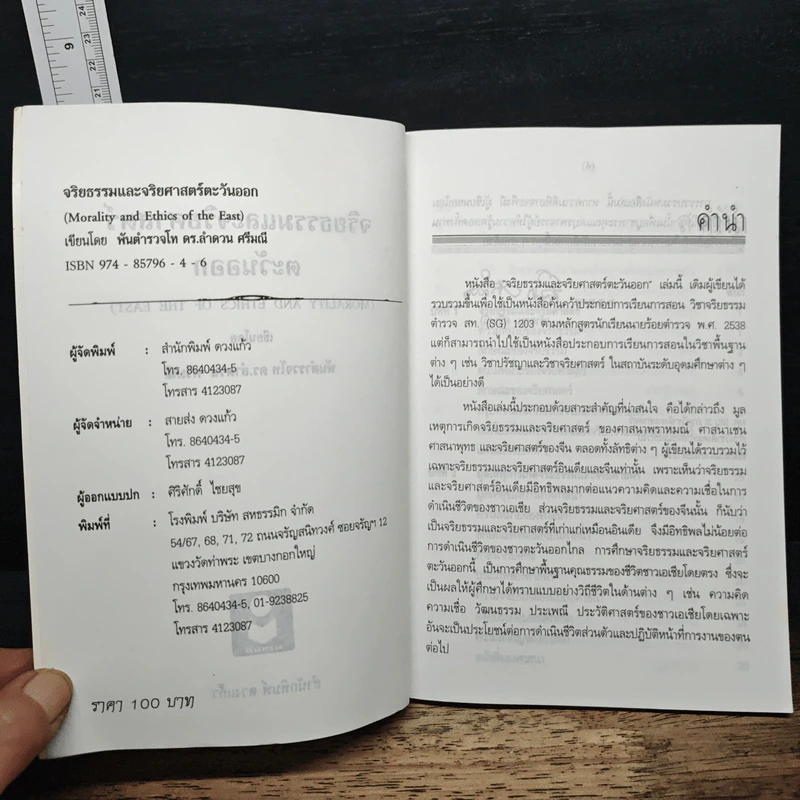 จริยธรรมและจริยศาสตร์ตะวันออก
(Morality and Ethics of the East)
เขียนโดย พันตำรวจโท ดร.ลำดวน ศรีมณี
ISBN 974 - 85796 - 4 - 6
ผู้จัดพิมพ์ : สำนักพิมพ์ ดวงแก้ว
โทร. 8640434-5
โทรสาร 4123087
ผู้จัดจำหน่าย : สายส่ง ดวงแก้ว
โทร. 8640434-5
โทรสาร 4123087
ผู้ออกแบบปก : ศิริศักดิ์ ไชยสุข
พิมพ์ที่ : โรงพิมพ์ บริษัท สหธรรมิก จำกัด
54/67, 68, 71, 72 ถนนจรัญสนิทวงศ์ ซอยจรัญฯ 12
แขวงวัดท่าพระ เขตบางกอกใหญ่
กรุงเทพมหานคร 10600
โทร. 8640434-5, 01-9238825
โทรสาร 4123087
ราคา 100 บาท
คำนำ
หนังสือ "จริยธรรมและจริยศาสตร์ตะวันออก" เล่มนี้ เดิมผู้เขียนได้
รวบรวมขึ้นเพื่อใช้เป็นหนังสือค้นคว้าประกอบการเรียนการสอน วิชาจริยธรรม
ตำรวจ สท. (SG) 1203 ตามหลักสูตรนักเรียนนายร้อยตำรวจ พ.ศ. 2538
แต่ก็สามารถนำไปใช้เป็นหนังสือประกอบการเรียนการสอนในวิชาพื้นฐาน
ต่าง ๆ เช่น วิชาปรัชญาและวิชาจริยศาสตร์ ในสถาบันระดับอุดมศึกษาต่าง ๆ
ได้เป็นอย่างดี
หนังสือเล่มนี้ประกอบด้วยสาระสำคัญที่น่าสนใจ คือได้กล่าวถึง มูล
เหตุการเกิดจริยธรรมและจริยศาสตร์ ของศาสนาพราหมณ์ ศาสนาเชน
ศาสนาพุทธ และจริยศาสตร์ของจีน ตลอดทั้งลัทธิต่าง ๆ ผู้เขียนได้รวบรวมไว้
เฉพาะจริยธรรมและจริยศาสตร์อินเดียและจีนเท่านั้น เพราะเห็นว่าจริยธรรม
และจริยศาสตร์อินเดียมีอิทธิพลมากต่อแนวความคิดและความเชื่อในการ
ดำเนินชีวิตของชาวเอเชีย ส่วนจริยธรรมและจริยศาสตร์ของจีนนั้น ก็นับว่า
เป็นจริยธรรมและจริยศาสตร์ที่เก่าแก่เหมือนอินเดีย จึงมีอิทธิพลไม่น้อยต่อ
การดำเนินชีวิตของชาวตะวันออกไกล การศึกษาจริยธรรมและจริยศาสตร์
ตะวันออกนี้ เป็นการศึกษาพื้นฐานคุณธรรมของชีวิตชาวเอเชียโดยตรง ซึ่งจะ
เป็นผลให้ผู้ศึกษาได้ทราบแบบอย่างวิถีชีวิตในด้านต่าง ๆ เช่น ความคิด
ความเชื่อ วัฒนธรรม ประเพณี ประวัติศาสตร์ของชาวเอเชียโดยเฉพาะ
อันจะเป็นประโยชน์ต่อการดำเนินชีวิตส่วนตัวและปฏิบัติหน้าที่การงานของตน
ต่อไป
9
24
23
22
21